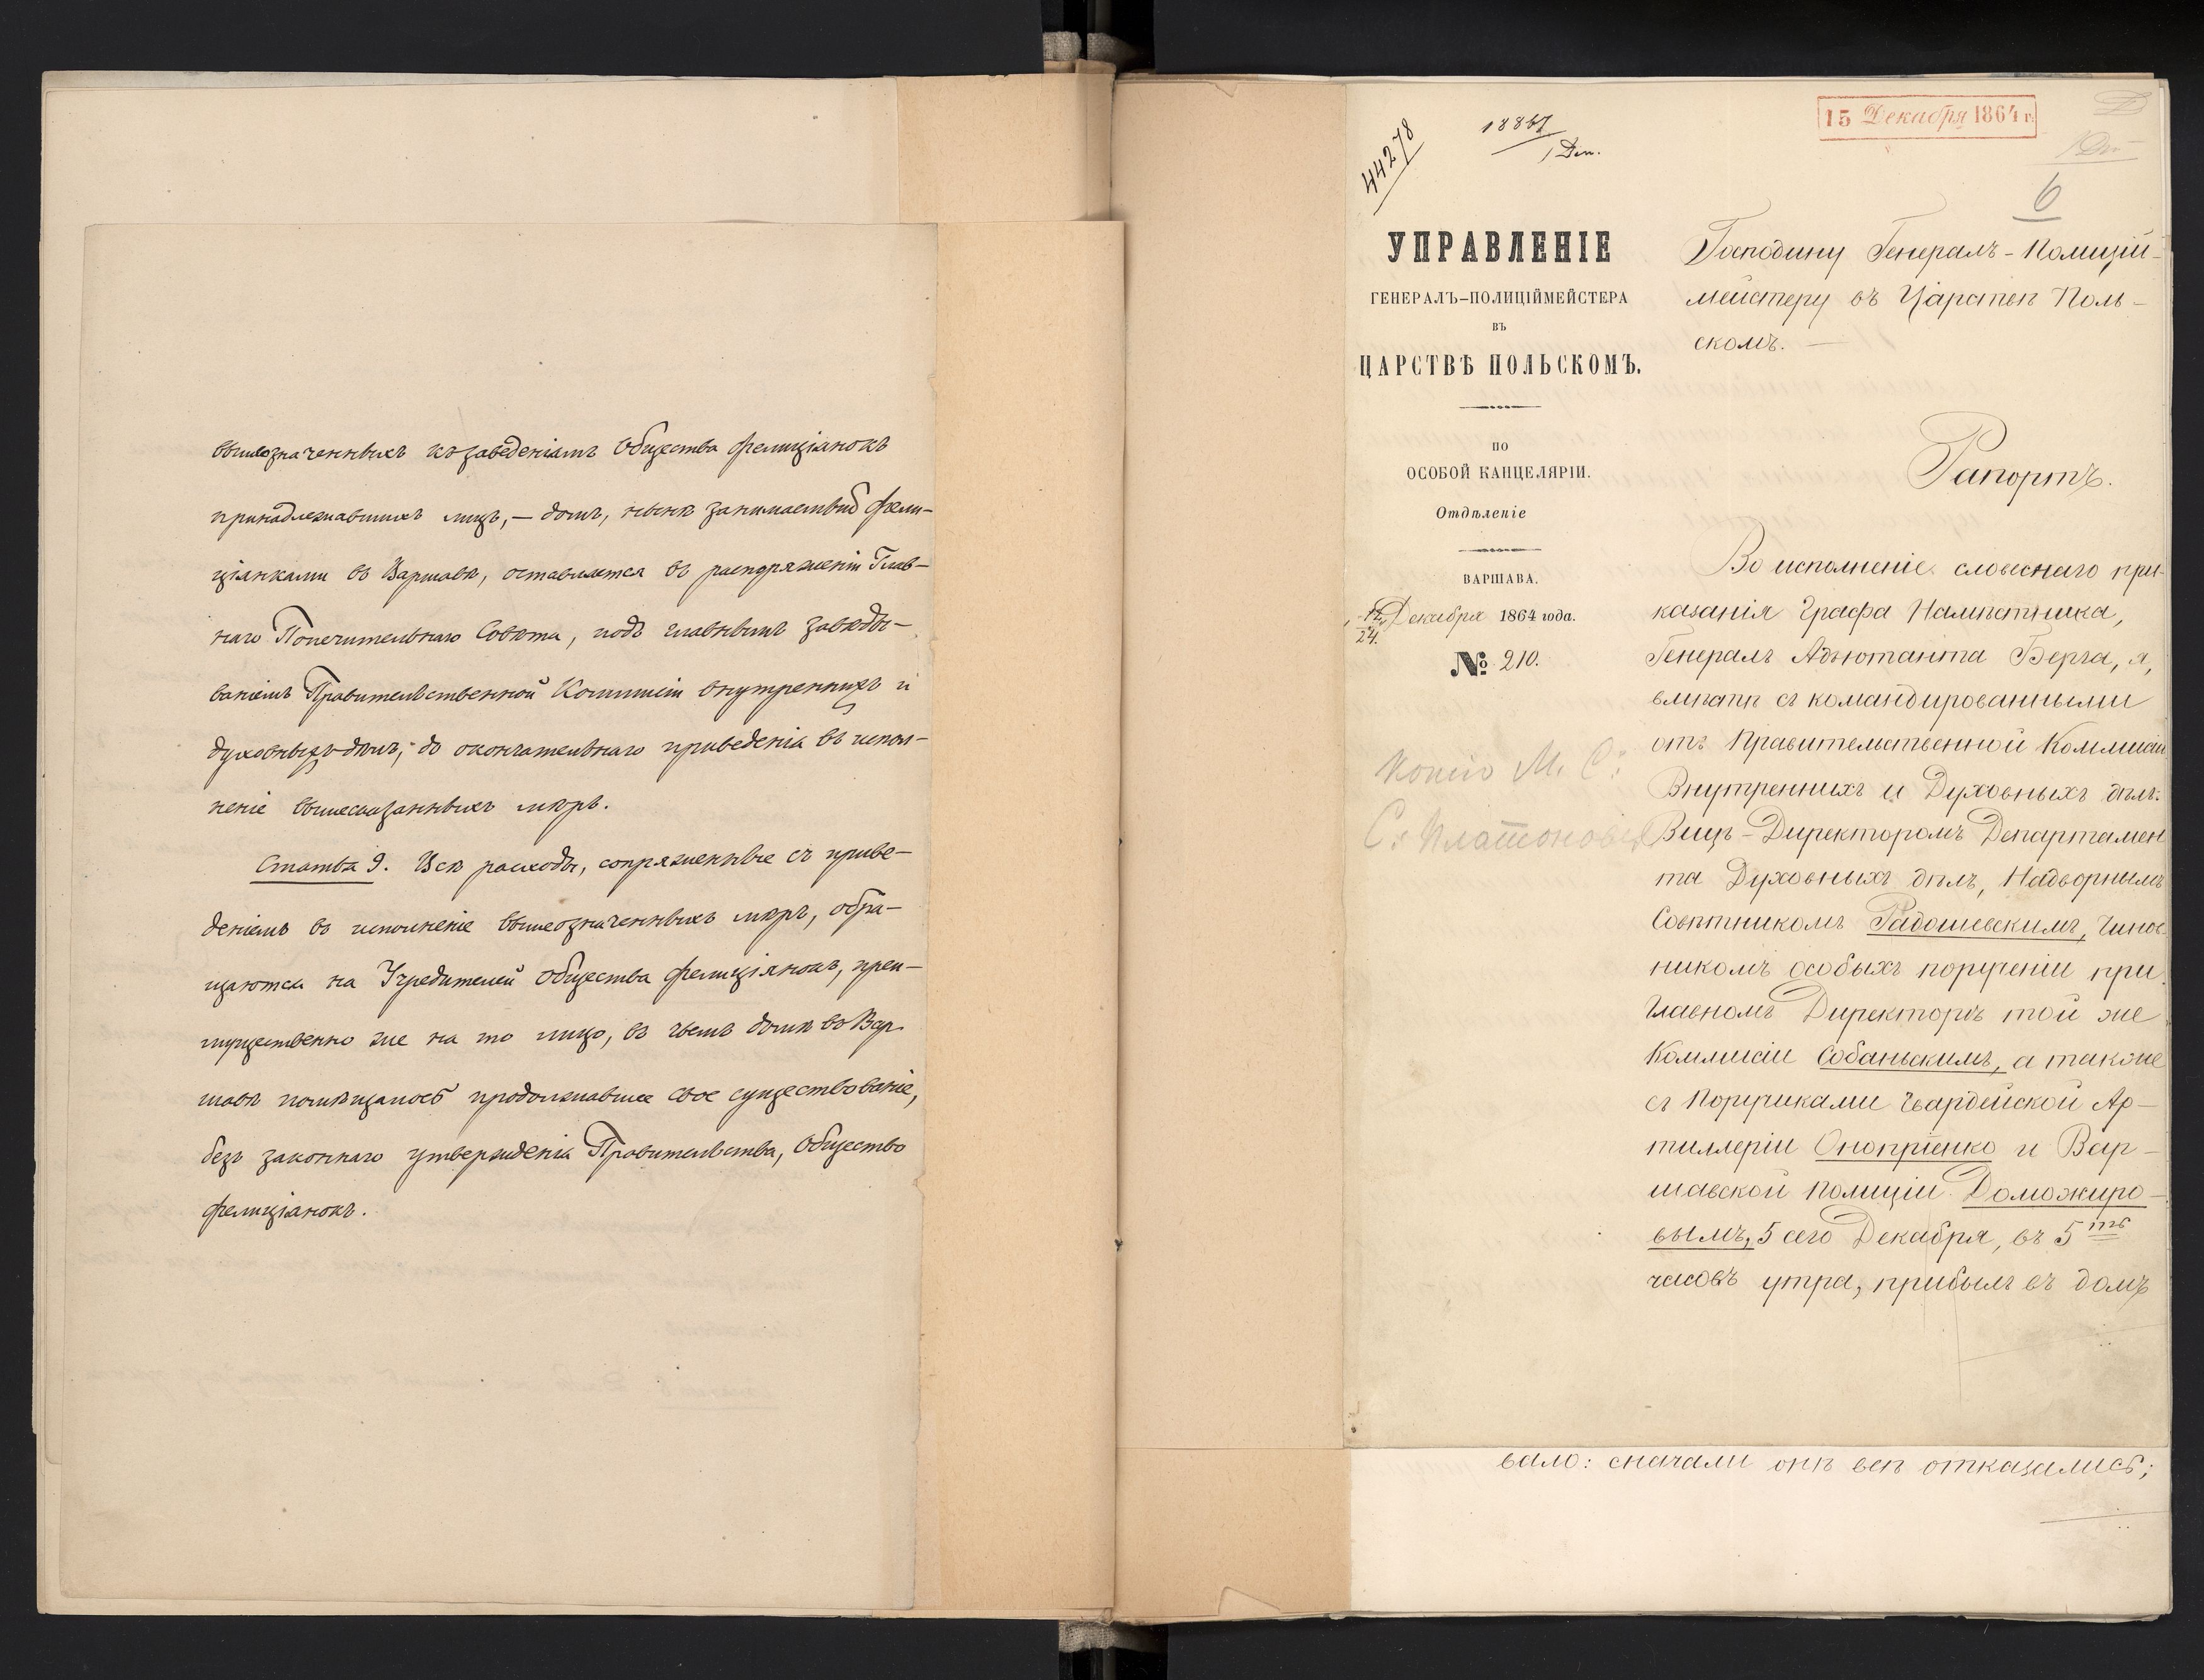 вышеозначенныхъ къ заведеніямъ Общества Фелиціянокъ
принадлежавшихъ лицъ, — домъ, нынѣ занимаемый Фели-
ціянками въ Варшавѣ, оставляется въ распоряженіи Глав-
наго Попечительнаго Совѣта, подъ главнымъ завѣды-
ваніемъ Правительственной Коммисіи внутреннихъ и
духовныхъ дѣлъ, до окончательнаго приведенія въ испол-
неніе вышесказанныхъ мѣръ.
Статья 9. Всѣ расходы, сопряженные съ приве-
деніемъ въ исполненіе вышеозначенныхъ мѣръ, обра-
щаются на Учредителей Общества Фелиціянокъ, преи-
мущественно же на то лицо, въ чьемъ домѣ въ Вар-
шавѣ помѣщалось продолжавшее свое существованіе,
безъ законнаго утвержденія Правительства, Общество
Фелиціянокъ.
44278
1 Деп.
15 Декабря 1864 г.
6
УПРАВЛЕНІЕ
ГЕНЕРАЛЪ-ПОЛИЦІЙМЕЙСТЕРА
ВЪ
ЦАРСТВѢ ПОЛЬСКОМЪ.
ПО
ОСОБОЙ КАНЦЕЛЯРІИ.
Отдѣленіе
ВАРШАВА.
12/24 Декабря 1864 года.
№ 210.
Копію М. С.
С. Платонова
Господину Генералъ-Полицій-
мейстеру въ Царствѣ Поль-
скомъ. —
Рапортъ.
Во исполненіе словеснаго при-
казанія Графа Намѣстника,
Генералъ Адъютанта Берга, я,
вмѣстѣ съ командированными
отъ Правительственной Коммисіи
Внутреннихъ и Духовныхъ дѣлъ:
Вице-Директоромъ Департамен
та Духовныхъ дѣлъ, Надворнымъ
Совѣтникомъ Радошевскимъ, Чинов-
никомъ особыхъ порученіи при
Главномъ Директорѣ той же
Коммисіи Собаньскимъ, а также
съ Поручиками Гвардейской Ар-
тиллеріи Оноприенко и Вар-
шавской Полиціи Доможиро-
вымъ, 5 сего Декабря, въ 5ть
часовъ утра, прибылъ въ домъ
вало: сначали онѣ всѣ отказались;